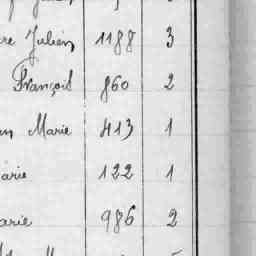 re Julien 1188 3
François 860 2
n Marie 413 1
arie 122 1
arie 986 2